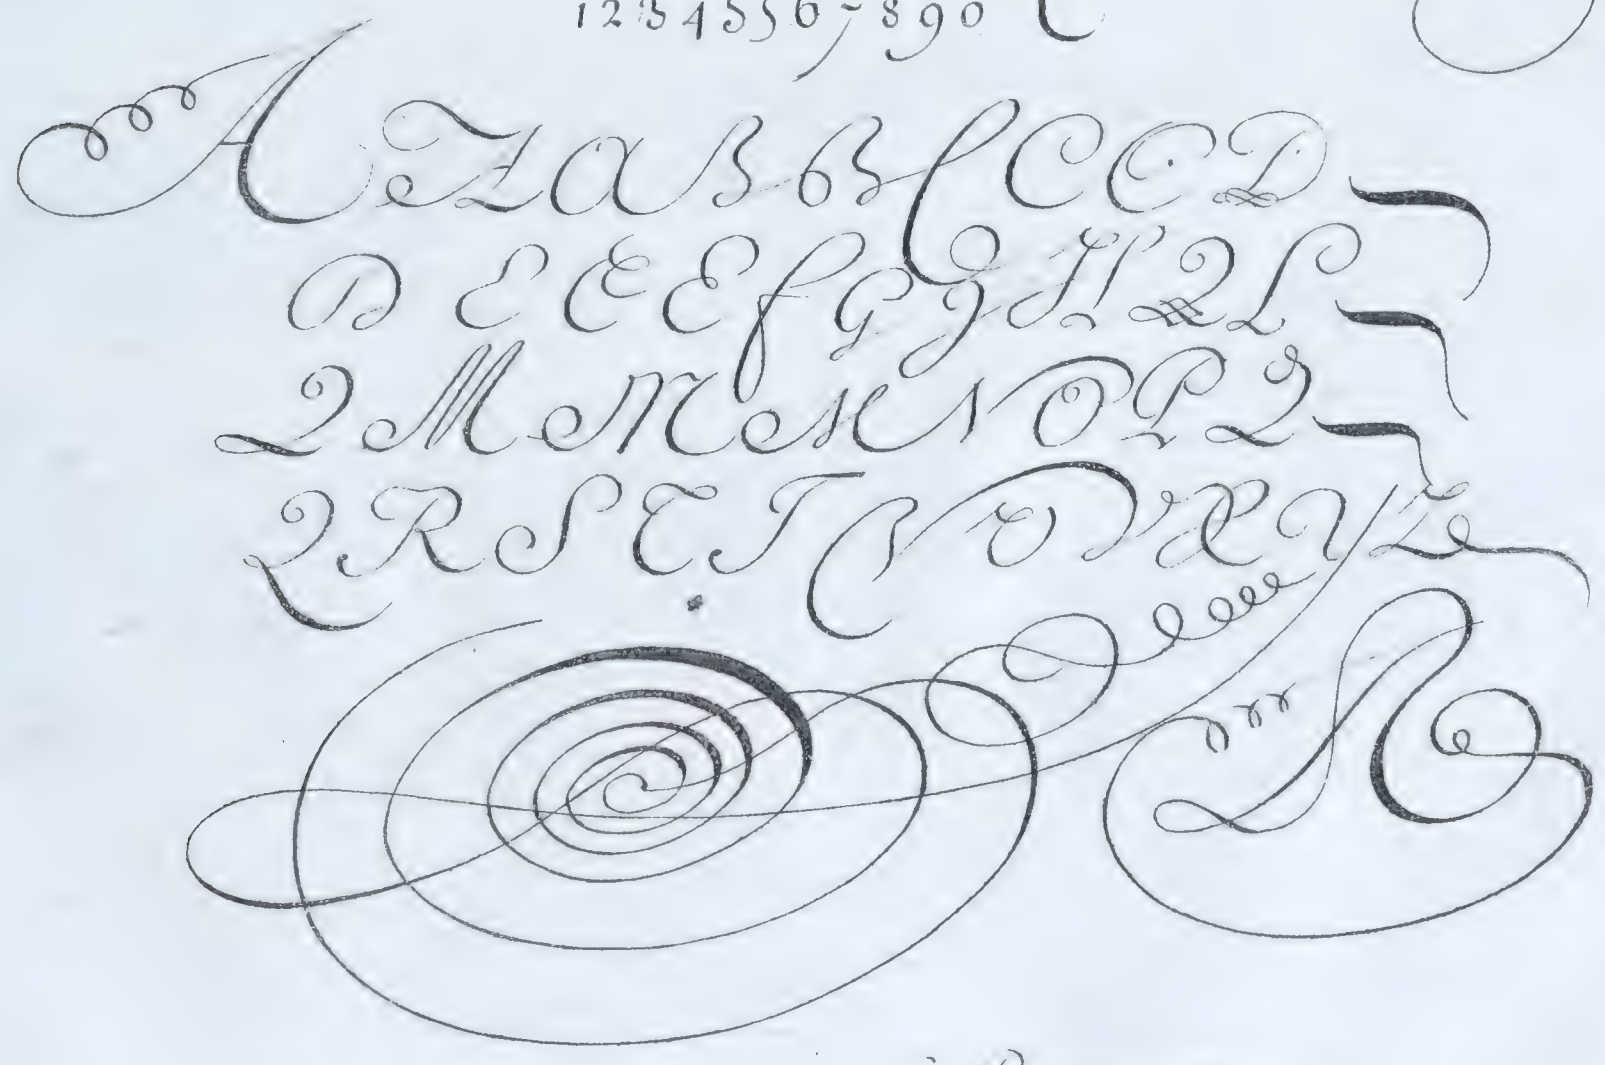 1 2 3 4 5 5 6 7 8 9 0
A A A B B C C C D
D E E E F G G H L L
L M M M N O P Q
Q R S T T V V V X Y Z